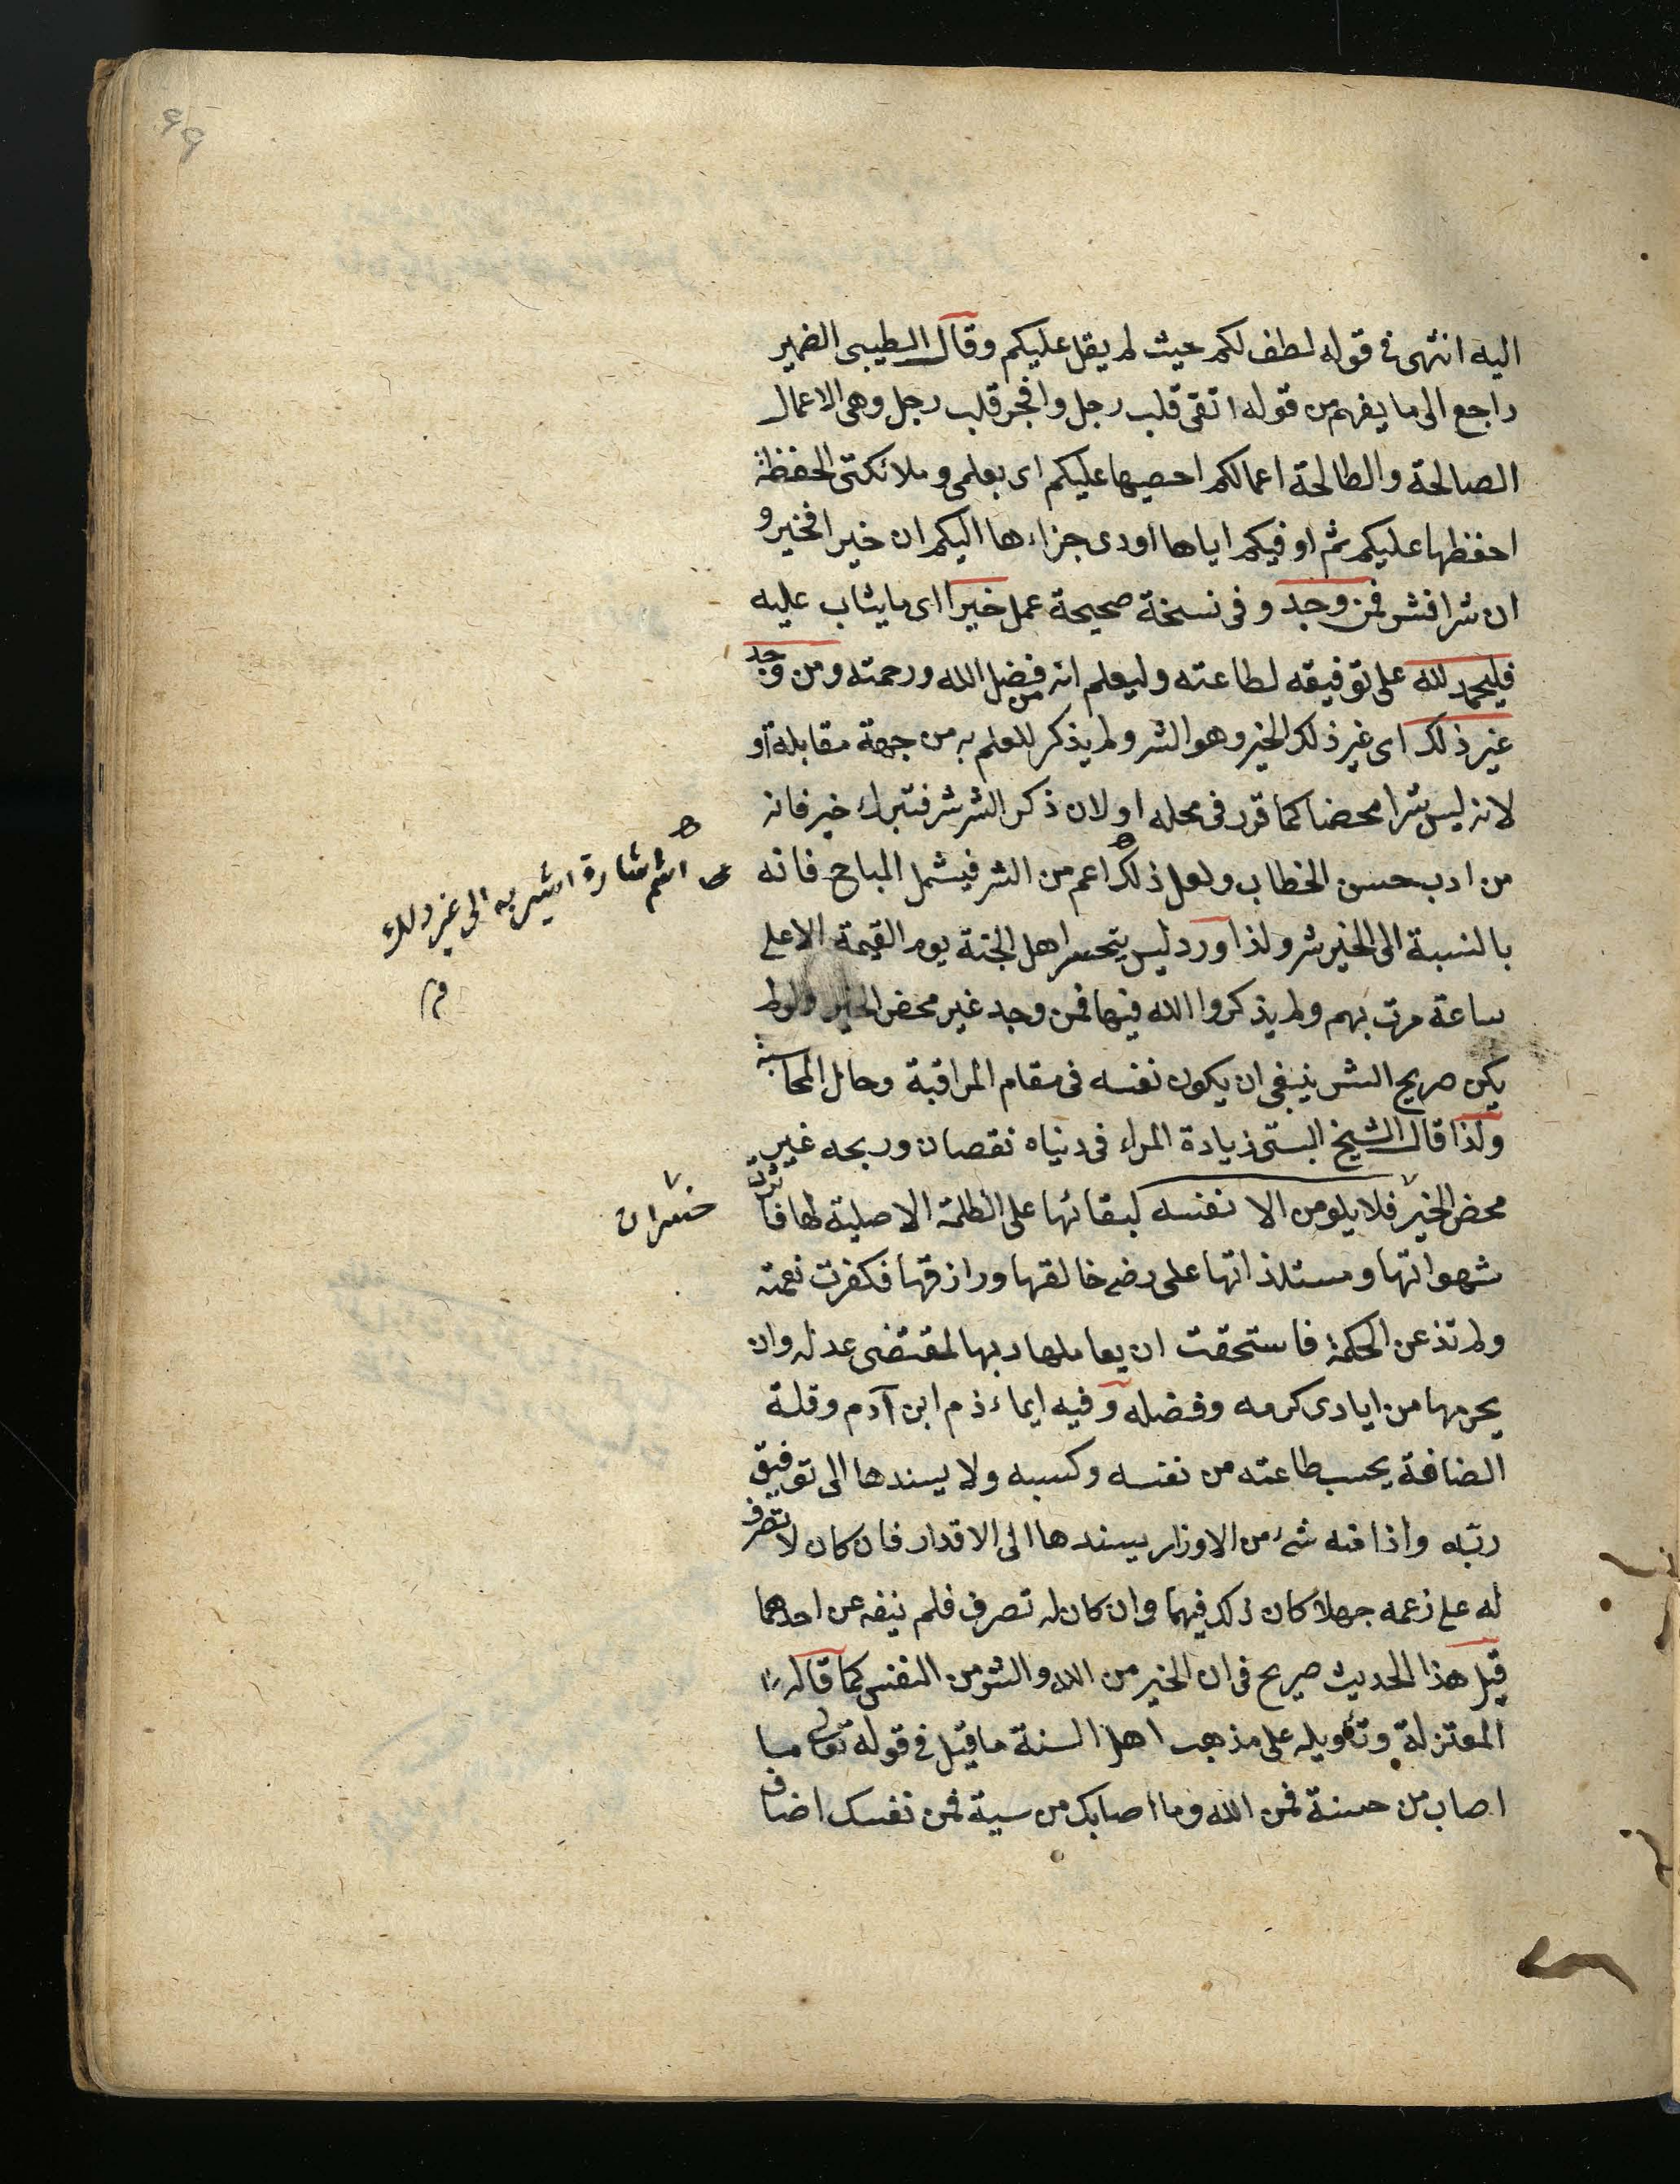 اليه انتهى فى قوله لطف لكم حيث لم يقل عليكم وقال الطيبى الضمير
راجع الى ما يفهم من قوله اتقى قلب رجل وافجر قلب رجل وهى الاعمال
الصالحة والطالحة اعمالكم احصيها عليكم اى بعلمى وملائكتى الحفظة
احفظها عليكم ثم اوفيكم اياها اودى جزاءها اليكم ان خيرا فخير و
ان شرا فشر فمن وجد وفى نسخة صحيحة عمل خيرا اى ما يثاب عليه
فليحمد لله على توفيقه لطاعته وليعلم انه من فضل الله ورحمته ومن وجد
غير ذلك اى غير ذلك الخير وهو الشر ولم يذكر للعلم به من جهة مقابله او
لانه ليس شرا محضا كما قرر فى محله او لان ذكر الشر شر فتبرك خير فانه
من ادب حسن الخطاب ولعل ذلك اعم من الشر فيشمل المباح فانه
بالنسبة الى الخير شر ولذا ورد ليس يتحسر اهل الجنة يوم القيمة الا على
ساعة مرت بهم ولم يذكروا الله فيها فمن وجد غير محض الخير ولو لم
يكن صريح الشر ينبغى ان يكون نفسه فى مقام المراقبة وحال المحاسبة
ولذا قال الشيخ البستى زيادة المرء فى دنياه نقصان وربحه غير
محض الخير فلا يلومن الا نفسه لبقائها على الظلمة الاصلية لها فاثرت
شهواتها ومستلذاتها على رضى خالقها ورازقها فكفرت نعمته
ولم تذعن الحكمة فاستحقت ان يعاملها ربها لمقتضى عدله وان
يحرمها من ايادى كرمه وفضله وفيه ايماء ذم ابن آدم وقلة
انصافة يحسب طاعته من نفسه وكسبه ولا يسندها الى توفيق
ربه واذا منه شىء من الاوزار يسندها الى الاقدار فان كان لا تصرف
له على زعمه جهلا كان ذلك فيهما وان كان له تصرف فلم ينفه عن احدهما
قيل هذا الحديث صريح فى ان الخير من الله والشر من النفس كما قاله
المعتزلة وتأويله على مذهب اهل السنة ما قيل فى قوله تعالى ما
اصاب من حسنة فمن الله وما اصابك من سية فمن نفسك اضاف
اسم اشارة اشير به الى غير ذلك
م
خسران